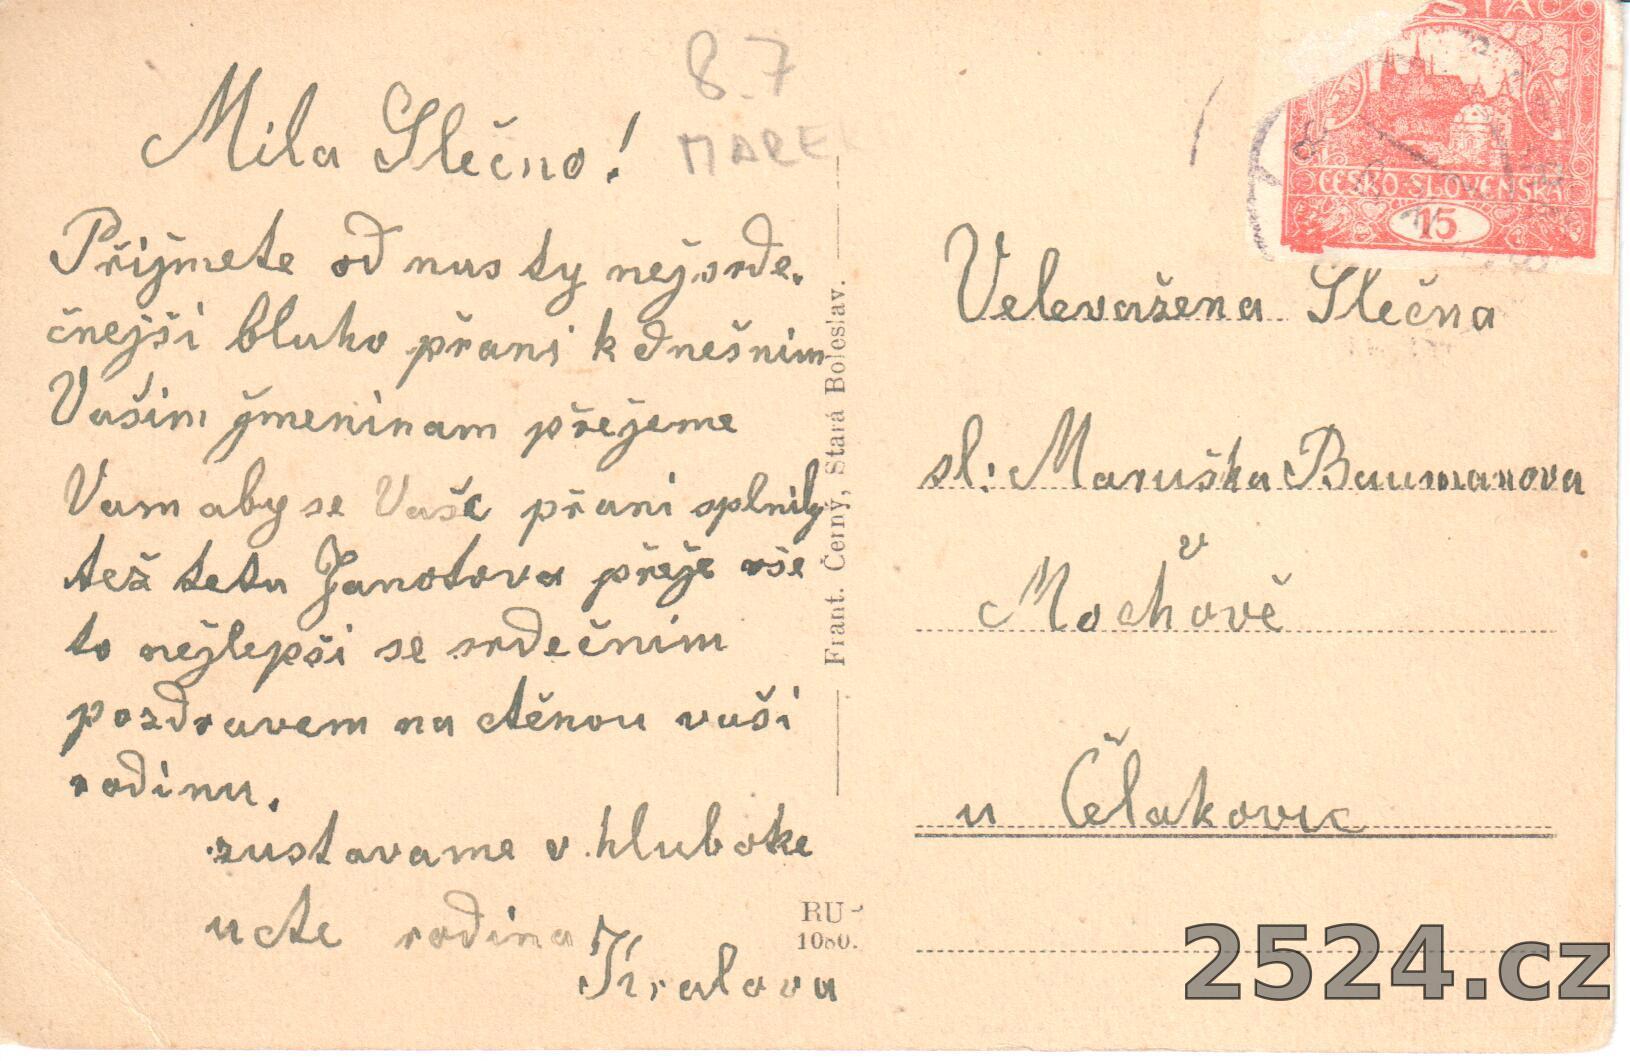 8.7
MAREK
Mila Slečno!
Přijmete od nas ty nejsrde.
čnejši bluho přani k dnešnim
Vašim jmeninam přejeme
Vam aby se Vaše přani splnily
tež teta Janotova přeje vše
to nejlepši se srdečnim
pozdravem na ctěnou vaši
rodinu.
zustavame v hluboke
ucte rodina
Kralova
Frant. Černý, Stará Boleslav.
RU
1080.
POŠTA
ČESKO-SLOVENSKÁ
15
Velevažena Slečna
sl: Maruška Baumanova
v
Mochově
u Čelakovic
2524.cz